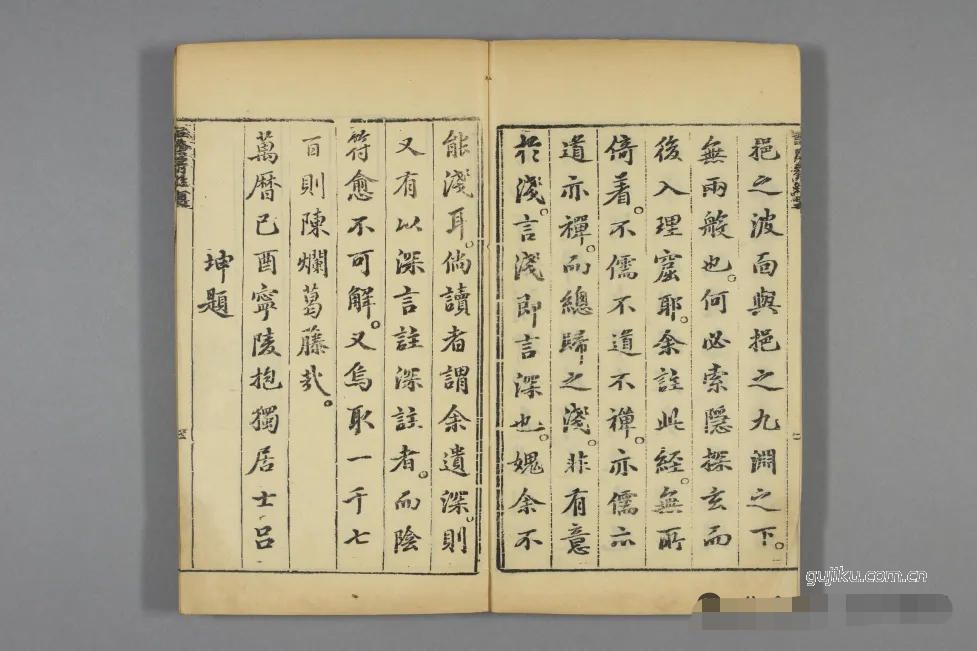 挹之波面與挹之九淵之下。
無兩般也。何必索隱探玄而
後入理窟耶。余註此經。無所
倚着。不儒不道不禪。亦儒亦
道亦禪。而總歸之淺。非有意
於淺。言淺即言深也。媿余不
能淺耳。倘讀者謂余遺深。則
又有以深言註深註者。而陰
符愈不可解。又烏取一千七
百則陳爛葛藤哉。
萬曆己酉寧陵抱獨居士呂
坤題
gujiku.com.cn